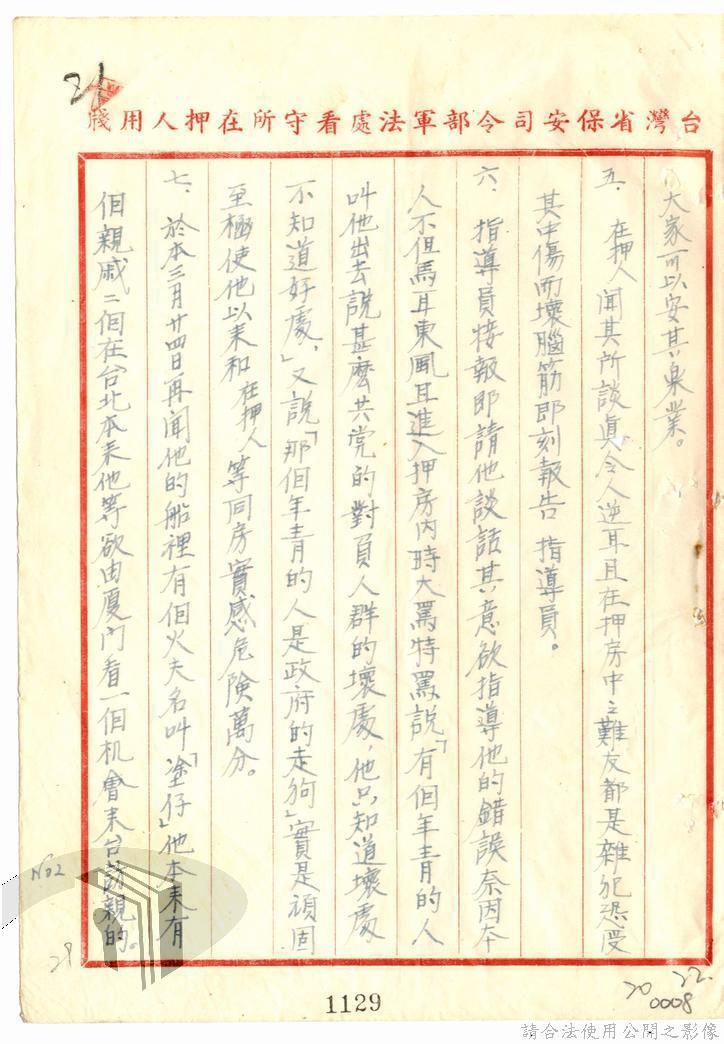 21
台灣省保安司令部軍法處看守所在押人用牋
大家可以安其樂業。
五、在押人聞其所談真令人逆耳且在押房中之難友都是雜犯恐受
其中傷而壞腦筋即刻報告 指導員。
六、指導員接報即請他談話其意欲指導他的錯誤奈因本
人不但馬耳東風且進入押房內時大罵特罵說「有個年青的人
叫他出去說甚麼共党的對員人群的壞處，他只知道壞處
不知道好處，」又說「那個年青的人是政府的走狗」實是頑固
至極使他以來和在押人等同房實感危險萬分。
七、於本三月廿四日再聞他的船裡有個火夫名叫「塗仔」他本來有
個親戚二個在台北本來他等欲由廈門看一個机會来台訪親的。
No2
28
1129
20
22.
0008
請合法使用公開之影像